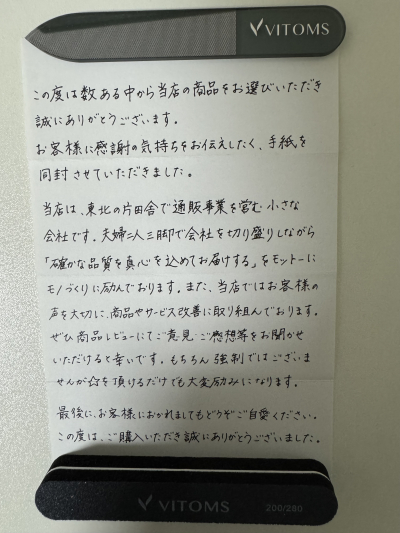 VITOMS
この度は数ある中から当店の商品をお選びいただき
誠にありがとうございます。
お客様に感謝の気持ちをお伝えしたく、手紙を
同封させていただきました。
当店は、東北の片田舎で通販事業を営む小さな
会社です。夫婦二人三脚で会社を切り盛りしながら
「確かな品質を真心を込めてお届けする」をモットーに
モノづくりに励んでおります。また、当店ではお客様の
声を大切に、商品やサービス改善に取り組んでおります。
ぜひ商品レビューにてご意見・ご感想等をお聞かせ
いただけると幸いです。もちろん強制ではございま
せんが☆を頂けるだけでも大変励みになります。
最後に、お客様におかれましてもどうぞご自愛ください。
この度は、ご購入いただき誠にありがとうございました。
VITOMS 200/280